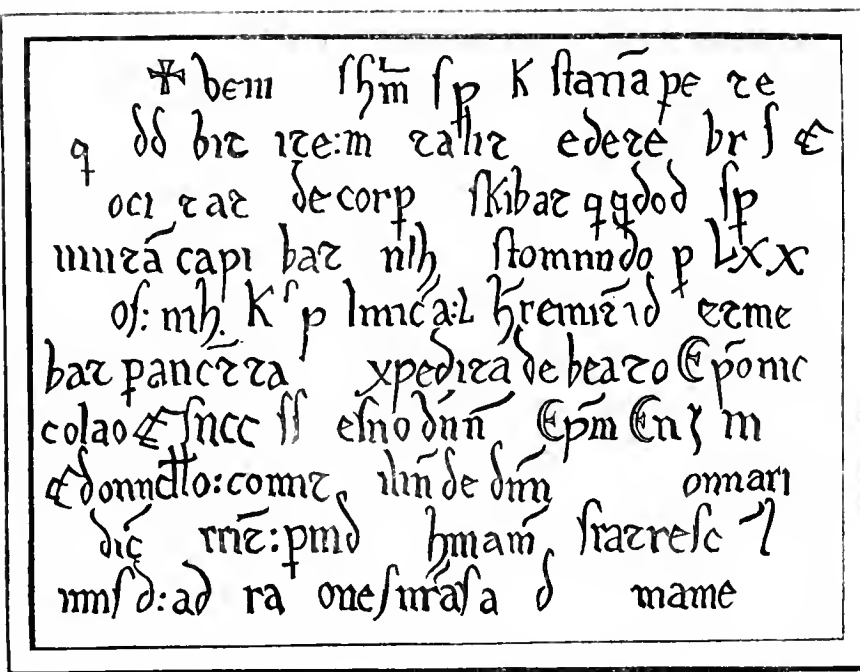 ✠ bem ſhm̄ ſp K ſtana̅ pe te
q dd bit ite:m tallit edete br ſ &
oci tat de corp ſkibat qqdod ſp
capi bat nlh ſtomnndo p LXX
oſ: mh. K ſ p hremit̄ id etme
bat pancr̄tta xpedita de beato Epōmc
colao & ſncc ſſ eſno dnn̄ Ep̄m En ȝ m
& comit ilm̄ de dm̄n onnari
dic̄ rrit̄:pmd hmam̄ fratreſc ⁊
mmſ d:ad ra oneſ nr̄aſ a d mame